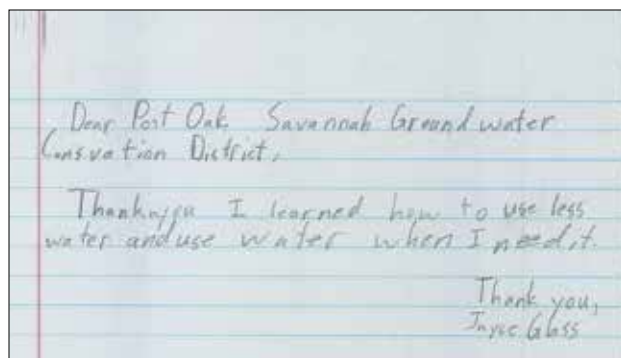 Dear Post Oak Savannah Groundwater
Consvation District,
Thankyou I learned how to use less
water and use water when I need it.
Thank you,
Jayce Glass